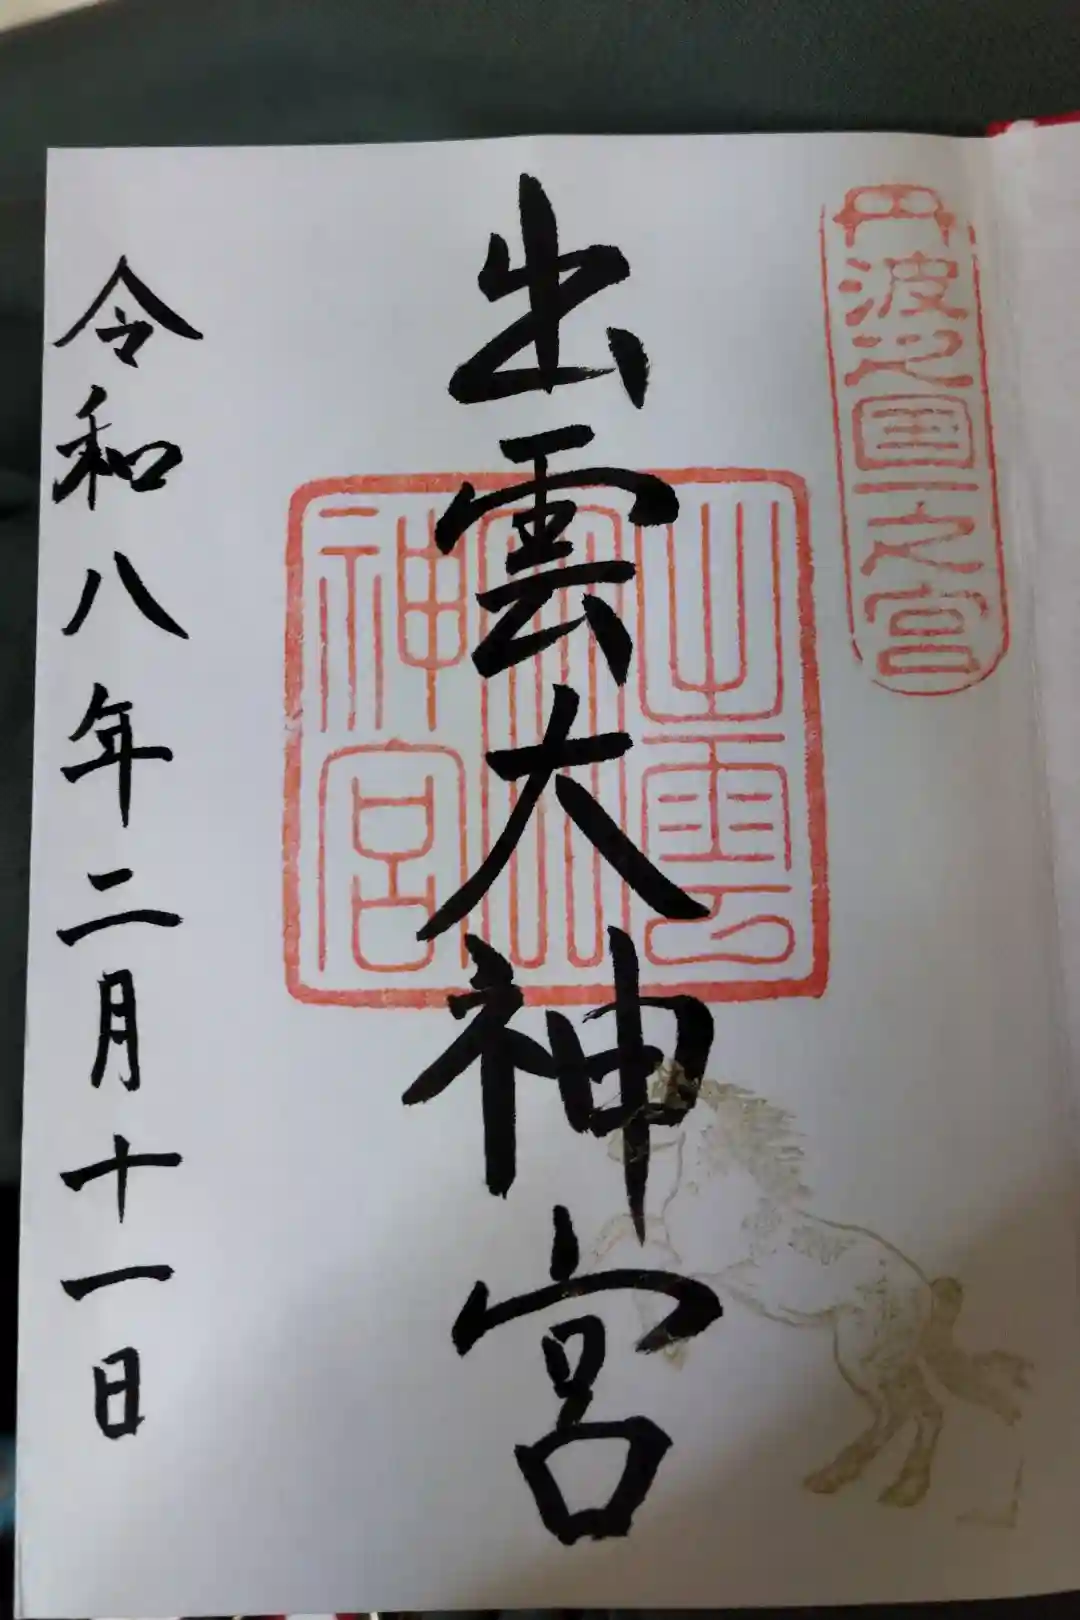 丹波之國一之宮
出雲大神宮
出雲
大
神宮
令和八年二月十一日